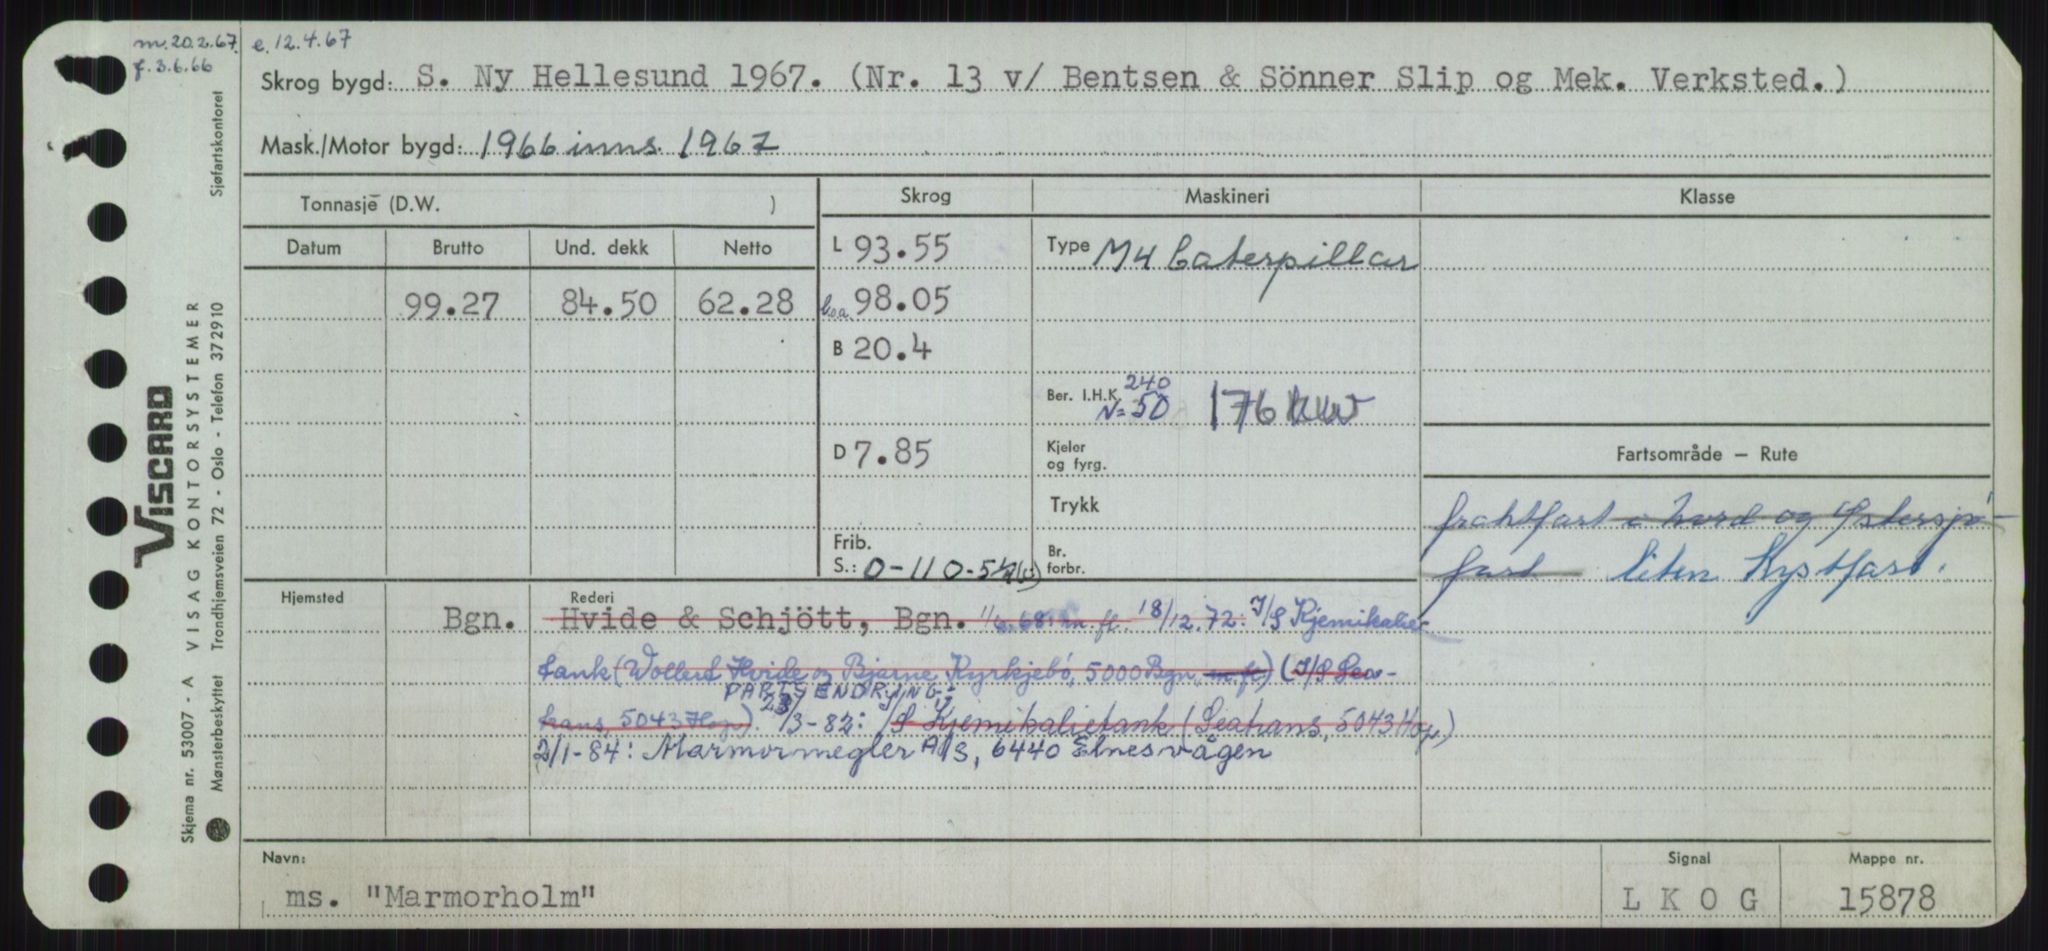 m. 20.2.67. e. 12.4.67
f. 3.6.66
Skrog bygd: S. Ny Hellesund 1967. (Nr. 13 v/ Bentsen & Sönner Slip og Mek. Verksted.)
Mask./Motor bygd: 1966 inns. 1967
Tonnasje (D.W. )
Skrog
Maskineri
Klasse
Datum
Brutto
Und. dekk
Netto
L 93.55
Type M4 Caterpillar
99.27
84.50
62.28
l.o.a. 98.05
B 20.4
Ber. I.H.K. 240
N=50 176 kW
D 7.85
Kjeler
og fyrg.
Fartsområde — Rute
Trykk
fraktfart i Nord og Østersjø-
fart liten Kystfart.
Frib.
S.: 0-11 0-5½(v)
Br.
forbr.
Hjemsted
Rederi
Bgn. Hvide & Schjött, Bgn. 1/6.68: m. fl. 18/12.72: I/S Kjemikalie-
tank (Wollert Hvide og Bjarne Kyrkjebø, 5000 Bgn. m.fl) (I/S Sea-
PARTSENDRING
trans, 5043 Hop). 23/3-82: I/S Kjemikalietank (Seatrans, 5043 Hop)
2/1-84: Marmormegler A/S, 6440 Elnesvågen
Navn:
ms. "Marmorholm"
Signal
L K O G
Mappe nr.
15878
Sjøfartskontoret
VISCARD
VISAG KONTORSYSTEMER
Trondhjemsveien 72 - Oslo - Telefon 372910
Skjema nr. 53007 - A
Mønsterbeskyttet